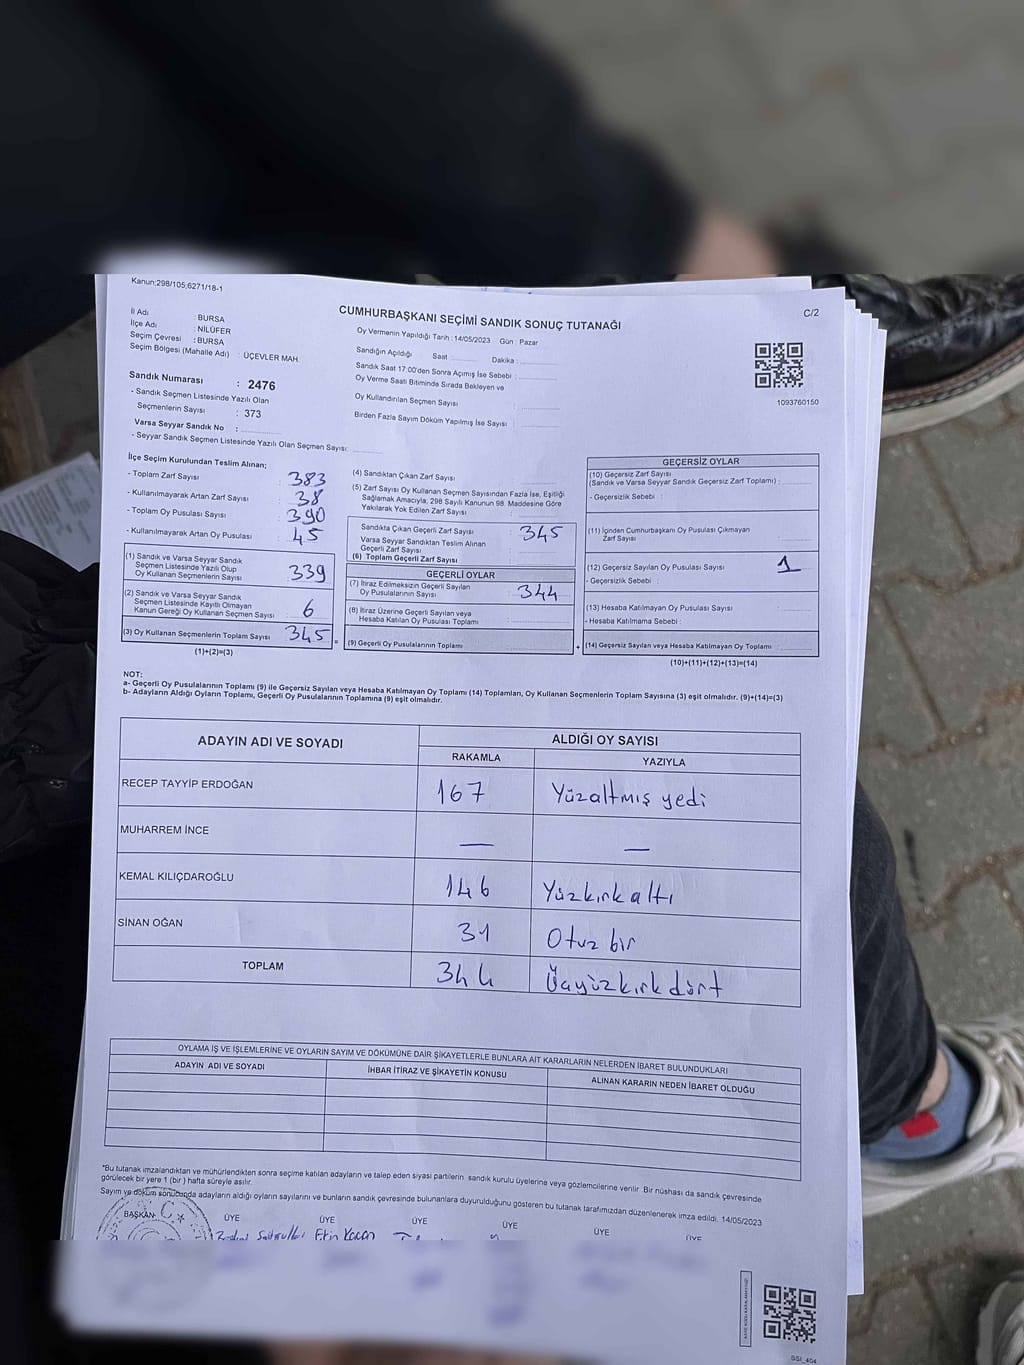 Kanun;298/105;6271/18-1
C/2
CUMHURBAŞKANI SEÇİMİ SANDIK SONUÇ TUTANAĞI
İl Adı : BURSA
İlçe Adı : NİLÜFER
Seçim Çevresi : BURSA
Seçim Bölgesi (Mahalle Adı) : ÜÇEVLER MAH.
Sandık Numarası : 2476
- Sandık Seçmen Listesinde Yazılı Olan
Seçmenlerin Sayısı : 373
Varsa Seyyar Sandık No :
- Seyyar Sandık Seçmen Listesinde Yazılı Olan Seçmen Sayısı:
Oy Vermenin Yapıldığı Tarih : 14/05/2023 Gün : Pazar
Sandığın Açıldığı Saat Dakika :
Sandık Saat 17:00'den Sonra Açımış İse Sebebi :
Oy Verme Saati Bitiminde Sırada Bekleyen ve
Oy Kullandırılan Seçmen Sayısı :
Birden Fazla Sayım Döküm Yapılmış İse Sayısı :
1093760150
İlçe Seçim Kurulundan Teslim Alınan;
- Toplam Zarf Sayısı : 383
- Kullanılmayarak Artan Zarf Sayısı : 38
- Toplam Oy Pusulası Sayısı : 390
- Kullanılmayarak Artan Oy Pusulası : 45
(1) Sandık ve Varsa Seyyar Sandık
Seçmen Listesinde Yazılı Olup
Oy Kullanan Seçmenlerin Sayısı : 339
(2) Sandık ve Varsa Seyyar Sandık
Seçmen Listesinde Kayıtlı Olmayan
Kanun Gereği Oy Kullanan Seçmen Sayısı : 6
(3) Oy Kullanan Seçmenlerin Toplam Sayısı : 345
(1)+(2)=(3)
(4) Sandıktan Çıkan Zarf Sayısı :
(5) Zarf Sayısı Oy Kullanan Seçmen Sayısından Fazla İse, Eşitliği
Sağlamak Amacıyla; 298 Sayılı Kanunun 98. Maddesine Göre
Yakılarak Yok Edilen Zarf Sayısı :
Sandıkta Çıkan Geçerli Zarf Sayısı : 345
Varsa Seyyar Sandıktan Teslim Alınan
Geçerli Zarf Sayısı
(6) Toplam Geçerli Zarf Sayısı
GEÇERLİ OYLAR
(7) İtiraz Edilmeksizin Geçerli Sayılan
Oy Pusulalarının Sayısı : 344
(8) İtiraz Üzerine Geçerli Sayılan veya
Hesaba Katılan Oy Pusulası Toplamı :
= (9) Geçerli Oy Pusulalarının Toplamı +
GEÇERSİZ OYLAR
(10) Geçersiz Zarf Sayısı
(Sandık ve Varsa Seyyar Sandık Geçersiz Zarf Toplamı) :
- Geçersizlik Sebebi :
(11) İçinden Cumhurbaşkanı Oy Pusulası Çıkmayan
Zarf Sayısı
(12) Geçersiz Sayılan Oy Pusulası Sayısı : 1
- Geçersizlik Sebebi :
(13) Hesaba Katılmayan Oy Pusulası Sayısı :
- Hesaba Katılmama Sebebi :
(14) Geçersiz Sayılan veya Hesaba Katılmayan Oy Toplamı :
(10)+(11)+(12)+(13)=(14)
NOT:
a- Geçerli Oy Pusulalarının Toplamı (9) ile Geçersiz Sayılan veya Hesaba Katılmayan Oy Toplamı (14) Toplamları, Oy Kullanan Seçmenlerin Toplam Sayısına (3) eşit olmalıdır. (9)+(14)=(3)
b- Adayların Aldığı Oyların Toplamı, Geçerli Oy Pusulalarının Toplamına (9) eşit olmalıdır.
ADAYIN ADI VE SOYADI ALDIĞI OY SAYISI
RAKAMLA YAZIYLA
RECEP TAYYİP ERDOĞAN 167 Yüzaltmış yedi
MUHARREM İNCE — —
KEMAL KILIÇDAROĞLU 146 Yüzkırk altı
SİNAN OĞAN 31 Otuz bir
TOPLAM 344 Üçyüzkırk dört
OYLAMA İŞ VE İŞLEMLERİNE VE OYLARIN SAYIM VE DÖKÜMÜNE DAİR ŞİKAYETLERLE BUNLARA AİT KARARLARIN NELERDEN İBARET BULUNDUKLARI
ADAYIN ADI VE SOYADI İHBAR İTİRAZ VE ŞİKAYETİN KONUSU ALINAN KARARIN NEDEN İBARET OLDUĞU
*Bu tutanak imzalandıktan ve mühürlendikten sonra seçime katılan adayların ve talep eden siyasi partilerin sandık kurulu üyelerine veya gözlemcilerine verilir. Bir nüshası da sandık çevresinde
görülecek bir yere 1 (bir) hafta süreyle asılır.
Sayım ve döküm sonucunda adayların aldığı oyların sayılarını ve bunların sandık çevresinde bulunanlara duyurulduğunu gösteren bu tutanak tarafımızdan düzenlenerek imza edildi. 14/05/2023
BAŞKAN ÜYE ÜYE ÜYE ÜYE ÜYE ÜYE
Ekin
GSI_404